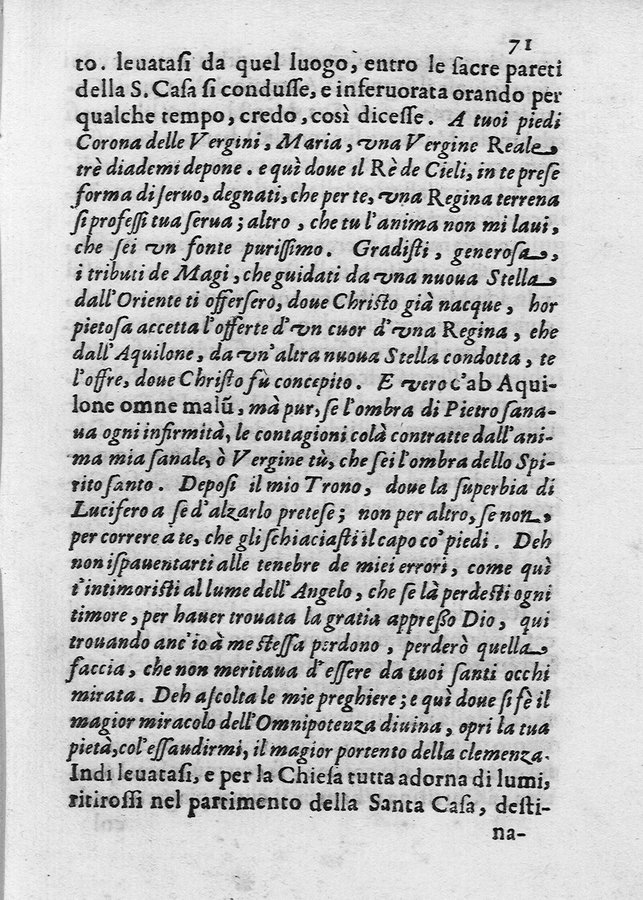 71
to. leuatasi da quel luogo, entro le ſacre pareti
della S. Caſa ſi conduſſe, e inferuorata orando per
qualche tempo, credo, così diceſſe. A tuoi piedi
Corona delle Vergini, Maria, vna Vergine Reale
trè diademi depone. e quì doue il Rè de Cieli, in te preſe
forma di ſeruo, degnati, che per te, vna Regina terrena
ſi profeſſi tua ſerua; altro, che tu l'anima non mi laui,
che ſei vn fonte puriſſimo. Gradiſti, generoſa,
i tributi de Magi, che guidati da vna nuoua Stella
dall'Oriente ti offerſero, doue Chriſto già nacque, hor
pietoſa accetta l'offerte d'vn cuor d'vna Regina, che
dall'Aquilone, da vn'altra nuoua Stella condotta, te
l'offre, doue Chriſto fù concepito. E vero c'ab Aqui-
lone omne malũ, mà pur, ſe l'ombra di Pietro ſana-
ua ogni infirmità, le contagioni colà contratte dall'ani-
ma mia ſanale, ò Vergine tù, che ſei l'ombra dello Spi-
rito ſanto. Depoſi il mio Trono, doue la ſuperbia di
Lucifero a ſe d'alzarlo preteſe; non per altro, ſe non
per correre a te, che gli ſchiaciaſti il capo co' piedi. Deh
non iſpauentarti alle tenebre de miei errori, come quì
t'intimoriſti al lume dell'Angelo, che ſe là perdeſti ogni
timore, per hauer trouata la gratia appreſſo Dio, quì
trouando anc'io à me ſteſſa perdono, perderò quella
faccia, che non meritaua d'eſſere da tuoi ſanti occhi
mirata. Deh aſcolta le mie preghiere; e quì doue ſi fè il
magior miracolo dell'Omnipotenza diuina, opri la tua
pietà, col'eſſaudirmi, il magior portento della clemenza.
Indi leuataſi, e per la Chieſa tutta adorna di lumi,
ritiroſſi nel partimento della Santa Caſa, deſti-
na-